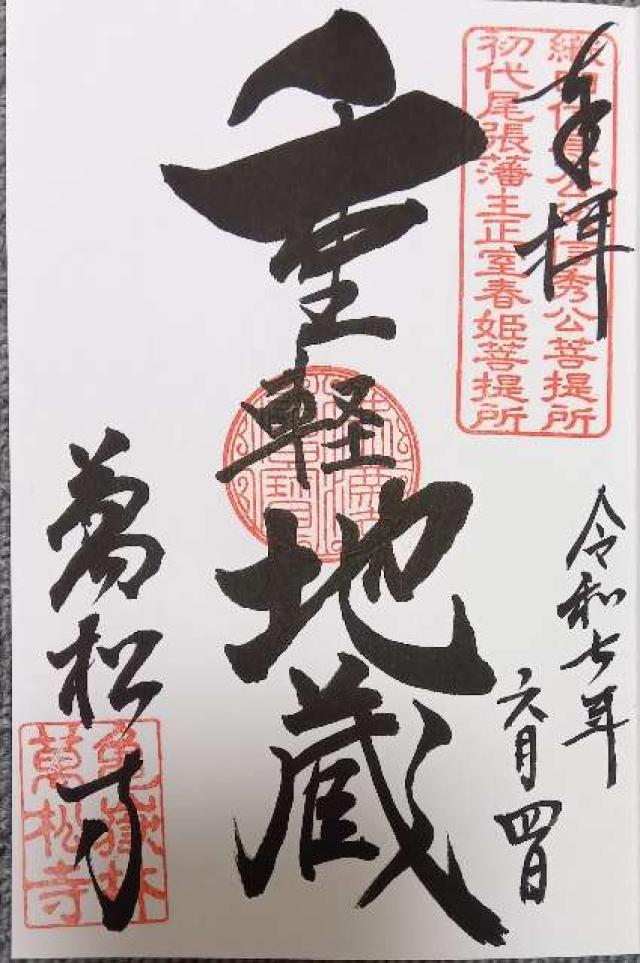 奉拝
織田信長公父信秀公菩提所
初代尾張藩主正室春姫菩提所
令和七年
六月四日
重軽地蔵
萬松寺
亀嶽林
萬松寺